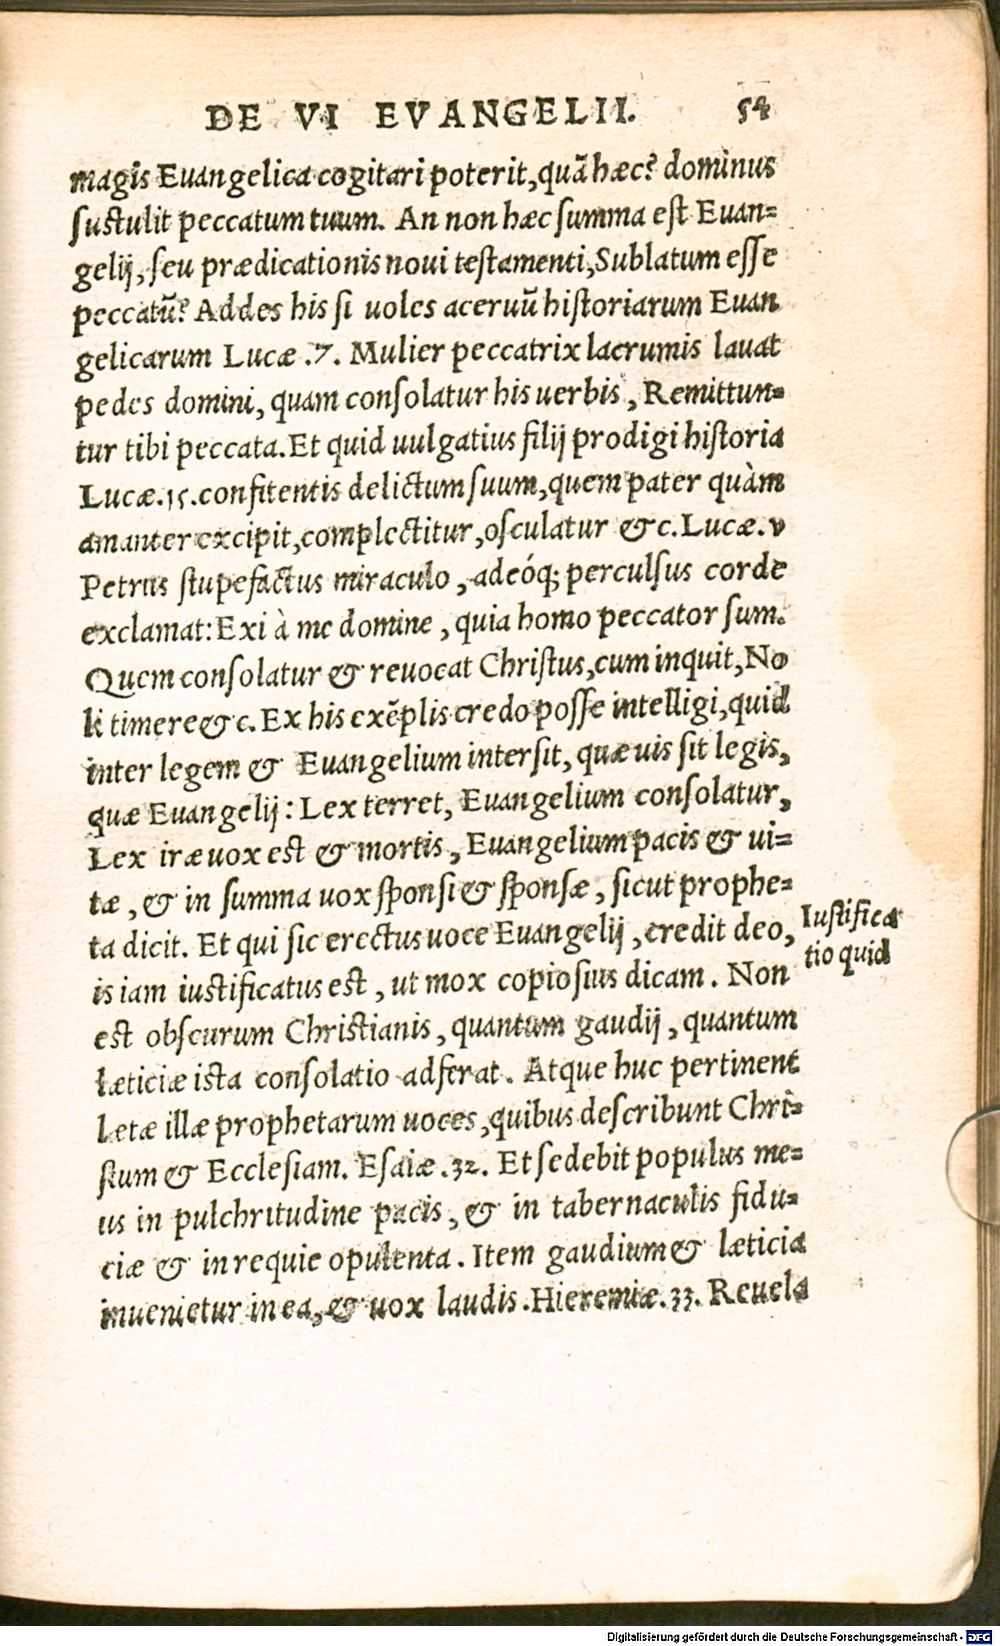 DE VI EVANGELII. 54
magis Euangelica cogitari poterit, quã hæc? dominus
sustulit peccatum tuum. An non hæc summa est Euan-
gelij, seu prædicationis noui testamenti, Sublatum esse
peccatũ? Addes his si uoles aceruũ historiarum Euan
gelicarum Lucæ .7. Mulier peccatrix lacrumis lauat
pedes domini, quam consolatur his uerbis, Remittun-
tur tibi peccata. Et quid uulgatius filij prodigi historia
Lucæ.15. confitentis delictum suum, quem pater quàm
amanter excipit, complectitur, osculatur &c. Lucæ. v
Petrus stupefactus miraculo, adeóq; perculsus corde
exclamat: Exi à me domine, quia homo peccator sum.
Quem consolatur & reuocat Christus, cum inquit, No
li timere &c. Ex his exẽplis credo posse intelligi, quid
inter legem & Euangelium intersit, quæ uis sit legis,
quæ Euangelij: Lex terret, Euangelium consolatur,
Lex iræ uox est & mortis, Euangelium pacis & ui-
tæ, & in summa uox sponsi & sponsæ, sicut prophe-
ta dicit. Et qui sic erectus uoce Euangelij, credit deo,
is iam iustificatus est, ut mox copiosius dicam. Non
est obscurum Christianis, quantum gaudij, quantum
læticiæ ista consolatio adferat. Atque huc pertinent
letæ illæ prophetarum uoces, quibus describunt Chri-
stum & Ecclesiam. Esaiæ .32. Et sedebit populus me-
us in pulchritudine pacis, & in tabernaculis fidu-
ciæ & in requie opulenta. Item gaudium & læticia
inuenietur in ea, & uox laudis. Hieremiæ. 33. Reuela
Iustifica
tio quid
Digitalisierung gefördert durch die Deutsche Forschungsgemeinschaft - DFG